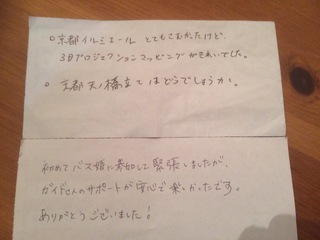 ○京都イルミエール とてもさむかったけど、
3Dプロジェクションマッピングがきれいでした。
○京都天ノ橋立てはどうでしょうか。
初めてバス婚に参加して緊張しましたが、
ガイドさんのサポートが安心で楽しかったです。
ありがとうございました!